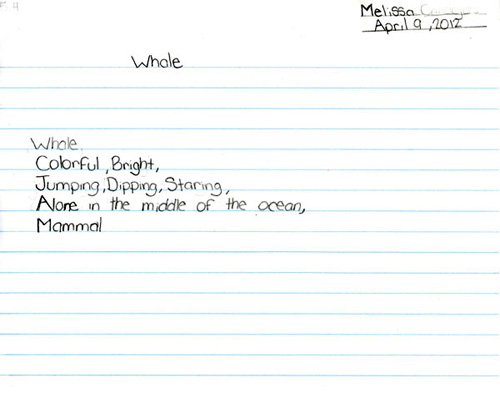 Melissa
April 9, 2012
Whale
Whale
Colorful, Bright,
Jumping, Dipping, Staring,
Alone in the middle of the ocean,
Mammal